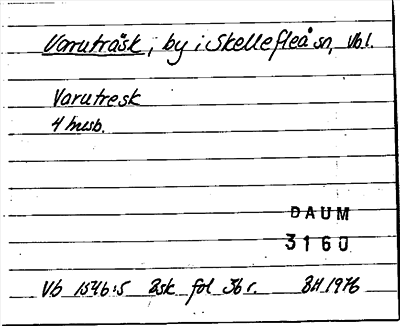 Varuträsk, by i Skellefteå sn, Vbl.
Varutresk
4 husb.
DAUM
3160
Vb 1546:5 åsk fol 36 r. BH 1976